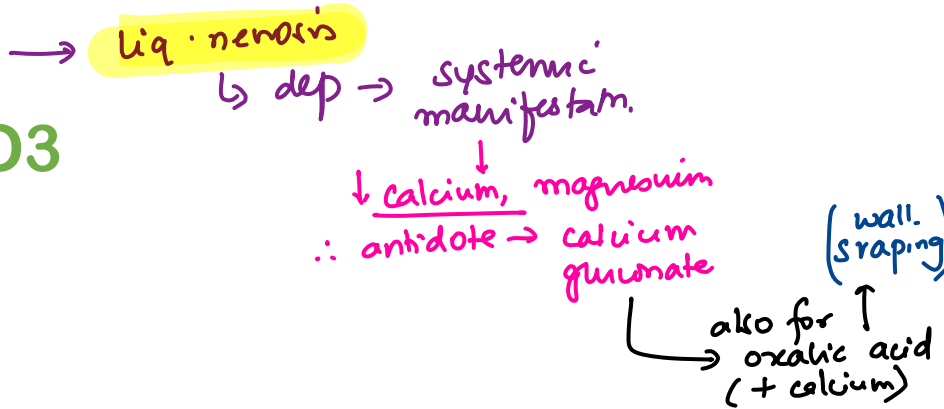 → liq · nerosis
↳ dep → systemic
manifestatn.
O3
↓
↓ calcium, magnesuim
∴ antidote → calcium
gluconate
(wall.
sraping)
↑
also for
→ oxalic acid
(+ calcium)